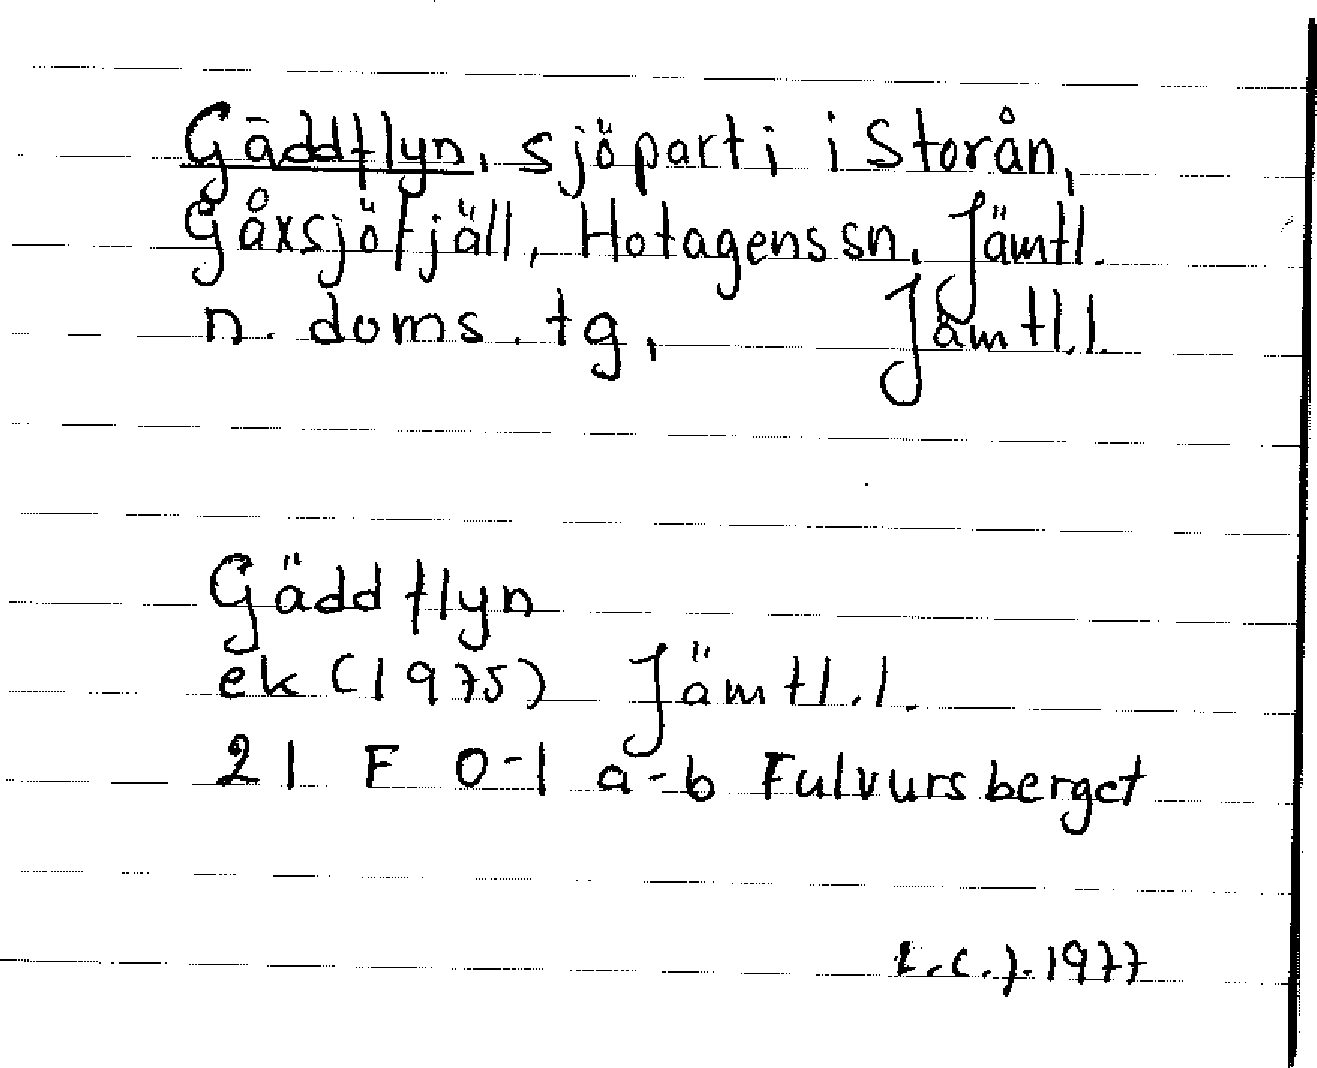 Gäddflyn, sjöparti i Storån,
Gåxsjöfjäll, Hotagens sn. Jämtl.
n. doms. tg, Jämtl.l.
Gäddflyn
ek (1975) Jämtl.l.
21 E 0-1 a-b Fulvursberget
1977